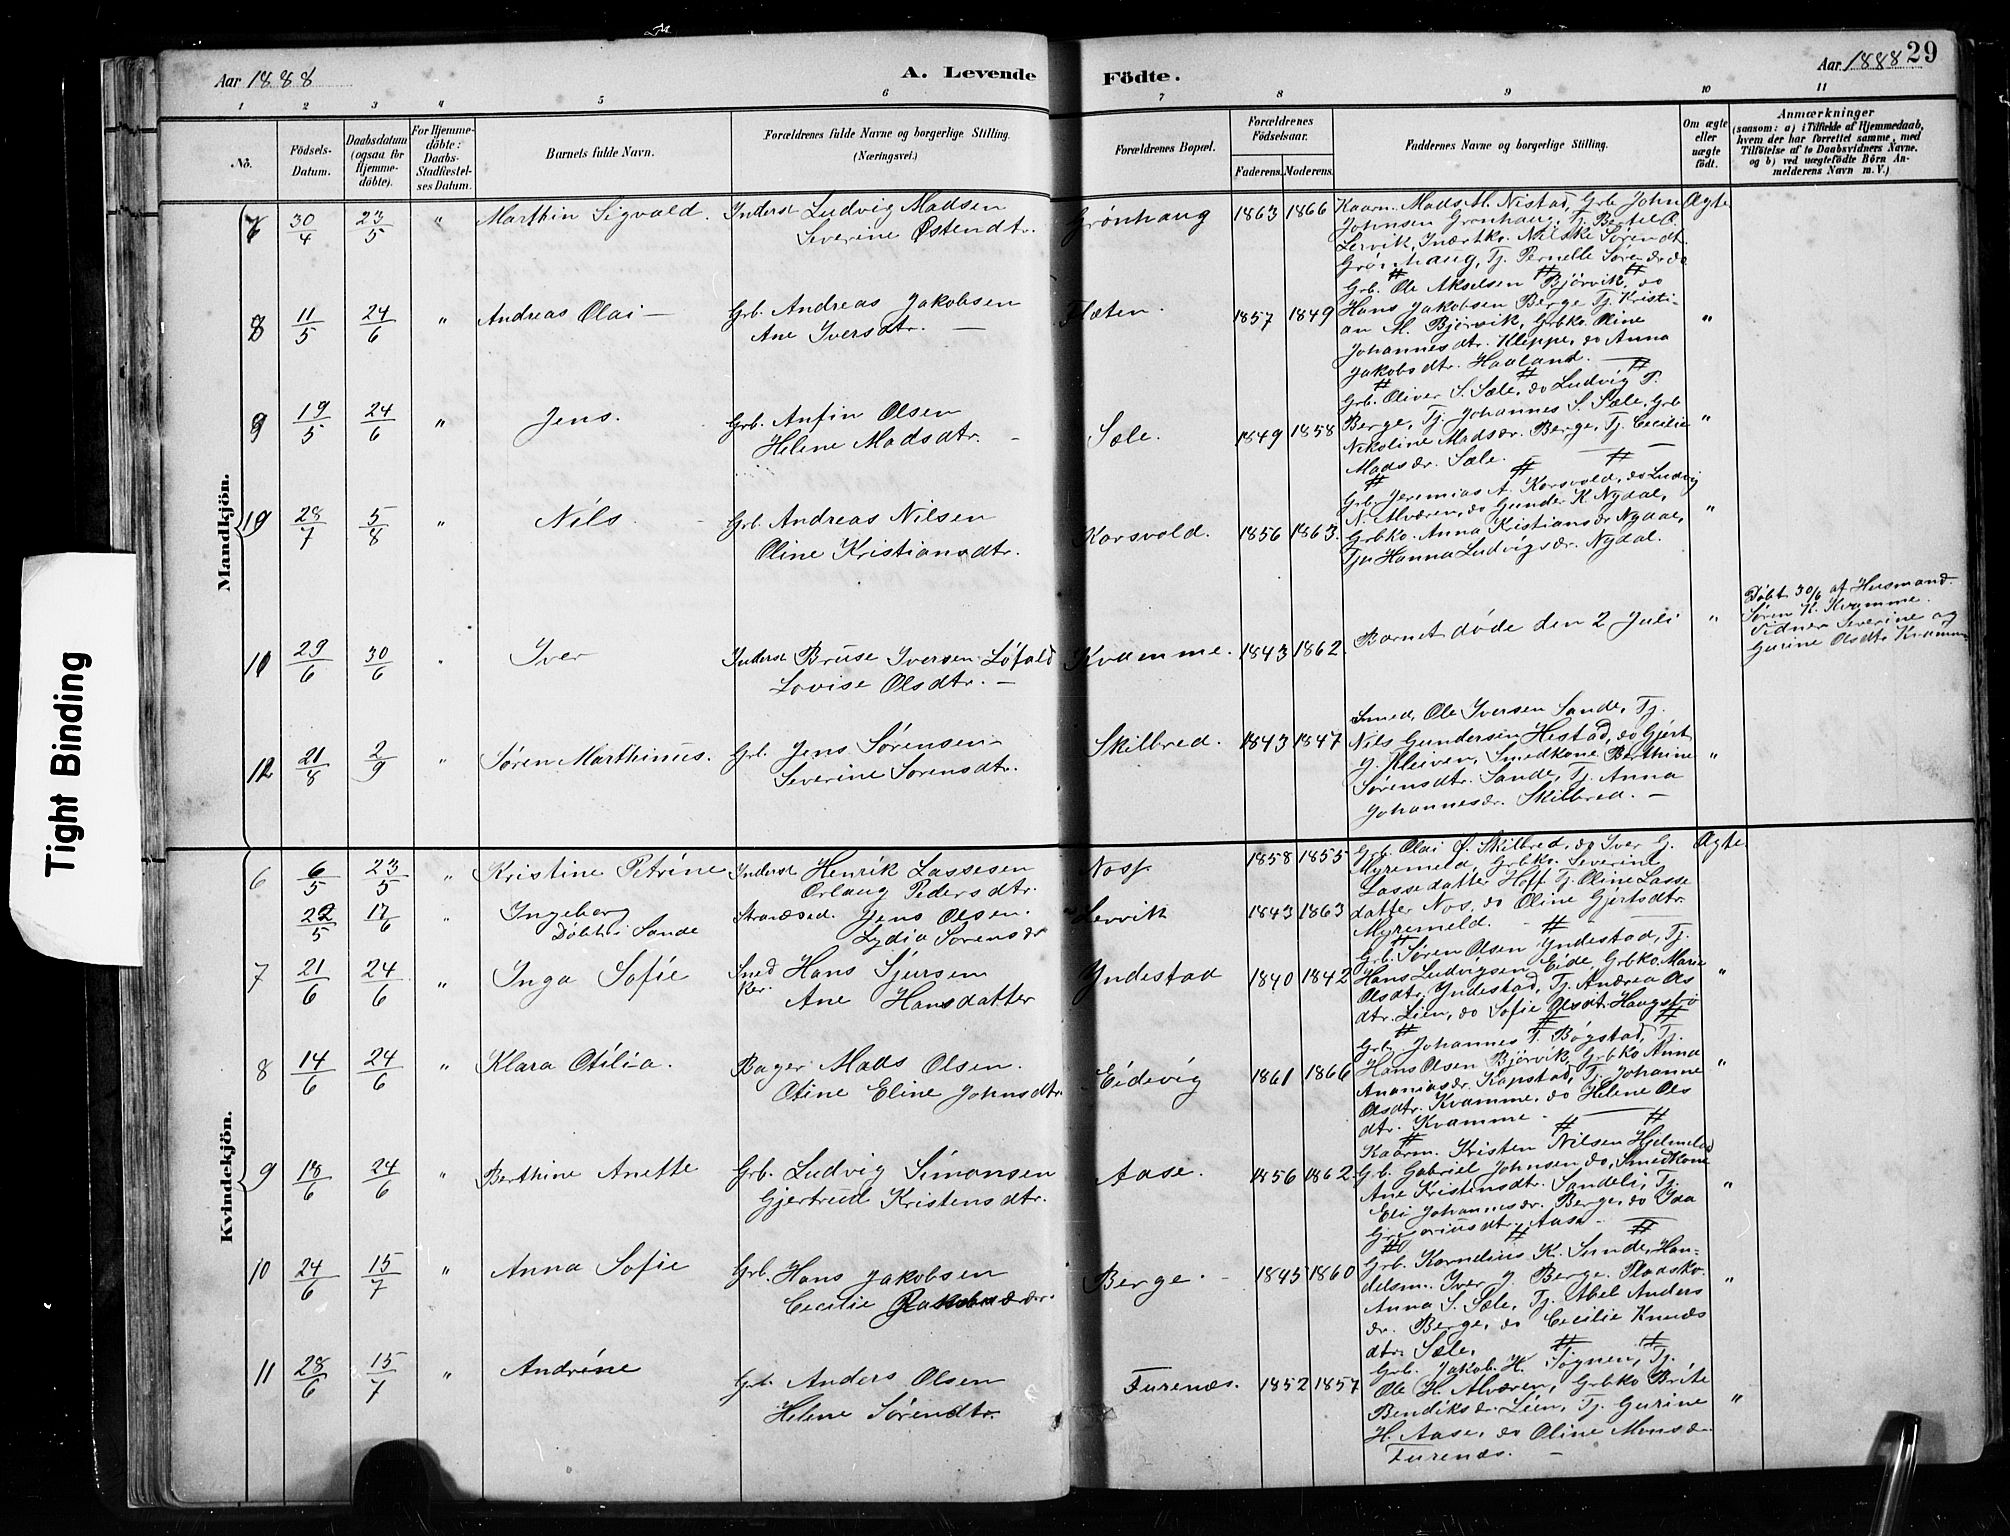 Aar 1888
A. Levende
Födte.
Aar 1888
29
1 2 3 4 5 6 7 8 9 10 11
No.
Födsels-
Datum.
Daabsdatum
(ogsaa for
Hjemme-
döbte).
For Hjemme-
döbte:
Daabs-
Stadfæstel-
ses Datum.
Barnets fulde Navn.
Forældrenes fulde Navne og borgerlige Stilling.
(Næringsvei.)
Forældrenes Bopæl.
Forældrenes
Födselsaar.
Faderens. Moderens.
Faddernes Navne og borgerlige Stilling.
Om ægte
eller
uægte
født.
Anmærkninger
(saasom: a) i Tilfælde af Hjemmedaab,
hvem der har forrettet samme, med
Tilföielse af to Daabsvidners Navne.
og b) ved uægtefödte Börn An-
melderens Navn m. V.)
Tight Binding
Mandkjön.
7 30/4 23/5 " Marthin Sigvald. Inderst Ludvig Madsen
Severine Østendtr.
Grønhaug 1863 1866
Kaarm. Mads M. Nistad, Grb. John
Johnsen Grønhaug, Tj. Bertel O.
Lervik, Inderstko. Nilske Sørendt.
Grønhaug, Tj. Pernelle Sørendr do
Ægte
8 11/5 24/6 " Andreas Olai — Grb. Andreas Jakobsen
Ane Iversdtr. —
Flæten. 1857 1849
Grb. Ole Akselsen Bjørvik, do
Hans Jakobsen Berge Tj. Kristi-
an M. Bjørvik, Grbko. Oline
Johannesdtr. Kleppe, do Anna
Jakobsdtr. Haaland.
"
9 19/5 24/6 " Jens. Grb. Anfin Olsen
Helene Madsdtr. —
Sæle. 1849 1858
Grb. Oliver S. Sæle, do Ludvig T.
Berge, Tj. Johannes S. Sæle, Grb
Nikoline Madsdr. Berge, Tj. Cecilie
Madsdr. Sæle.
"
10 28/7 5/8 " Nils. Grb. Andreas Nilsen
Oline Kristiansdtr.
Korsvold. 1856 1863.
Grb. Jeremias A. Korsvold, do Ludvig
N. Alværen, do Gunder K. Nydal,
Grbko. Anna Kristiansdr Nydal,
Tj. Hanna Ludvigsdr. Nydal.
"
11 29/6 30/6 " Iver Inderst Bruse Iversen Løfald
Lovise Olsdtr. —
Kvamme. 1843 1862
Barnet døde den 2 Juli
"
Døbt 30/6 af Husmand.
Søren K. Kvamme.
Vidner Severine og
Gurine Olsdtr Kvamme
12 21/8 2/9 " Søren Marthinus. Grb. Jens Sørensen
Severine Sørensdtr.
Skilbred. 1843 1847
Smed, Ole Iversen Sande, Tj.
Nils Gundersen Hestad, do Gjert
J. Kleiven, Smedkone Berthine
Sørensdtr. Sande, Tj. Anna
Johannesdr. Skilbred. —
"
Kvindekjön.
6 6/5 23/5 " Kristine Petrine Inderst Henrik Lassesen
Orlaug Pedersdtr.
Nos 1858 1855
Grb. Olai O. Skilbred, do Iver G.
Myremeld, Grbko. Severine
Lassedatter Hoff Tj. Oline Lasse
datter Nos, do Oline Gjertsdtr.
Myremeld.
Ægte
22/5 17/6 " Ingeborg
Døbt i Sande
Strandsid. Jens Olsen.
Lydia Sørensdr
Lervik 1843 1863
7 21/6 24/6 " Inga Sofie Sned
ker. Hans Sjursen
Ane Hansdatter
Yndestad 1840 1842
Grb. Søren Olsen Yndestad, Tj.
Hans Ludvigsen Eide, Grbko. Marie
Olsdtr. Yndestad, Tj. Andrea Ols
dtr. Lien, do Sofie Olsdtr.
"
8 14/6 24/6 " Klara Otilia. Bager Mads Olsen.
Oline Eline Johnsdtr.
Eidevig 1861 1866
Grb. Johannes T. Bøgstad, Tj.
Hans Olsen Bjørvik, Grbko Anna
Ananiasdr. Kapstad, Tj. Johanne
Olsdtr. Kvamme, do Helene Ols
dtr. Kvamme
"
9 18/6 24/6 " Berthine Anette Grb. Ludvig Simonsen
Gjertrud Kristensdtr.
Aase. 1856 1862.
Kaarm. Kristen Nilsen Hjelmeland
Grb. Gabriel Johnsen do, Smedkone
Ane Kristensdtr. Sandeli, Tj.
Eli Johannesdr. Berge, do Ida
Gregoriusdtr. Aase
"
10 24/6 15/7 " Anna Sofie Grb. Hans Jakobsen
Cecilie
Berge. 1845 1860
Grb. Kornelius K. Sunde, Han-
delsm. Iver J. Berge. Pladsko.
Anna S. Sæle, Tj. Abel Anders
dr. Berge, do Cecilie Knuds
dtr. Sæle.
"
11 28/6 15/7 " Andrine Grb. Anders Olsen
Helene Sørendtr.
Furenæs. 1852 1857
Grb. Jakob H. Sognen, Tj.
Ole H. Alværen, Grbko Brite
Bendiksdr. Lien, Tj. Gurine
H. Aase, do Oline Monsdr
Furenæs. —
"